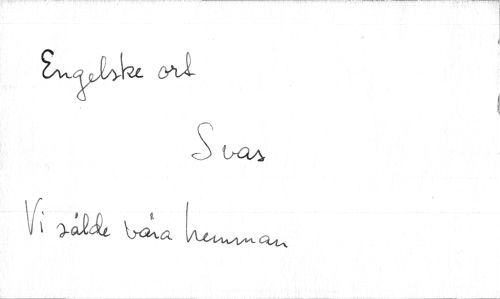 Engelske ort
Svas
Vi sålde våra hemman